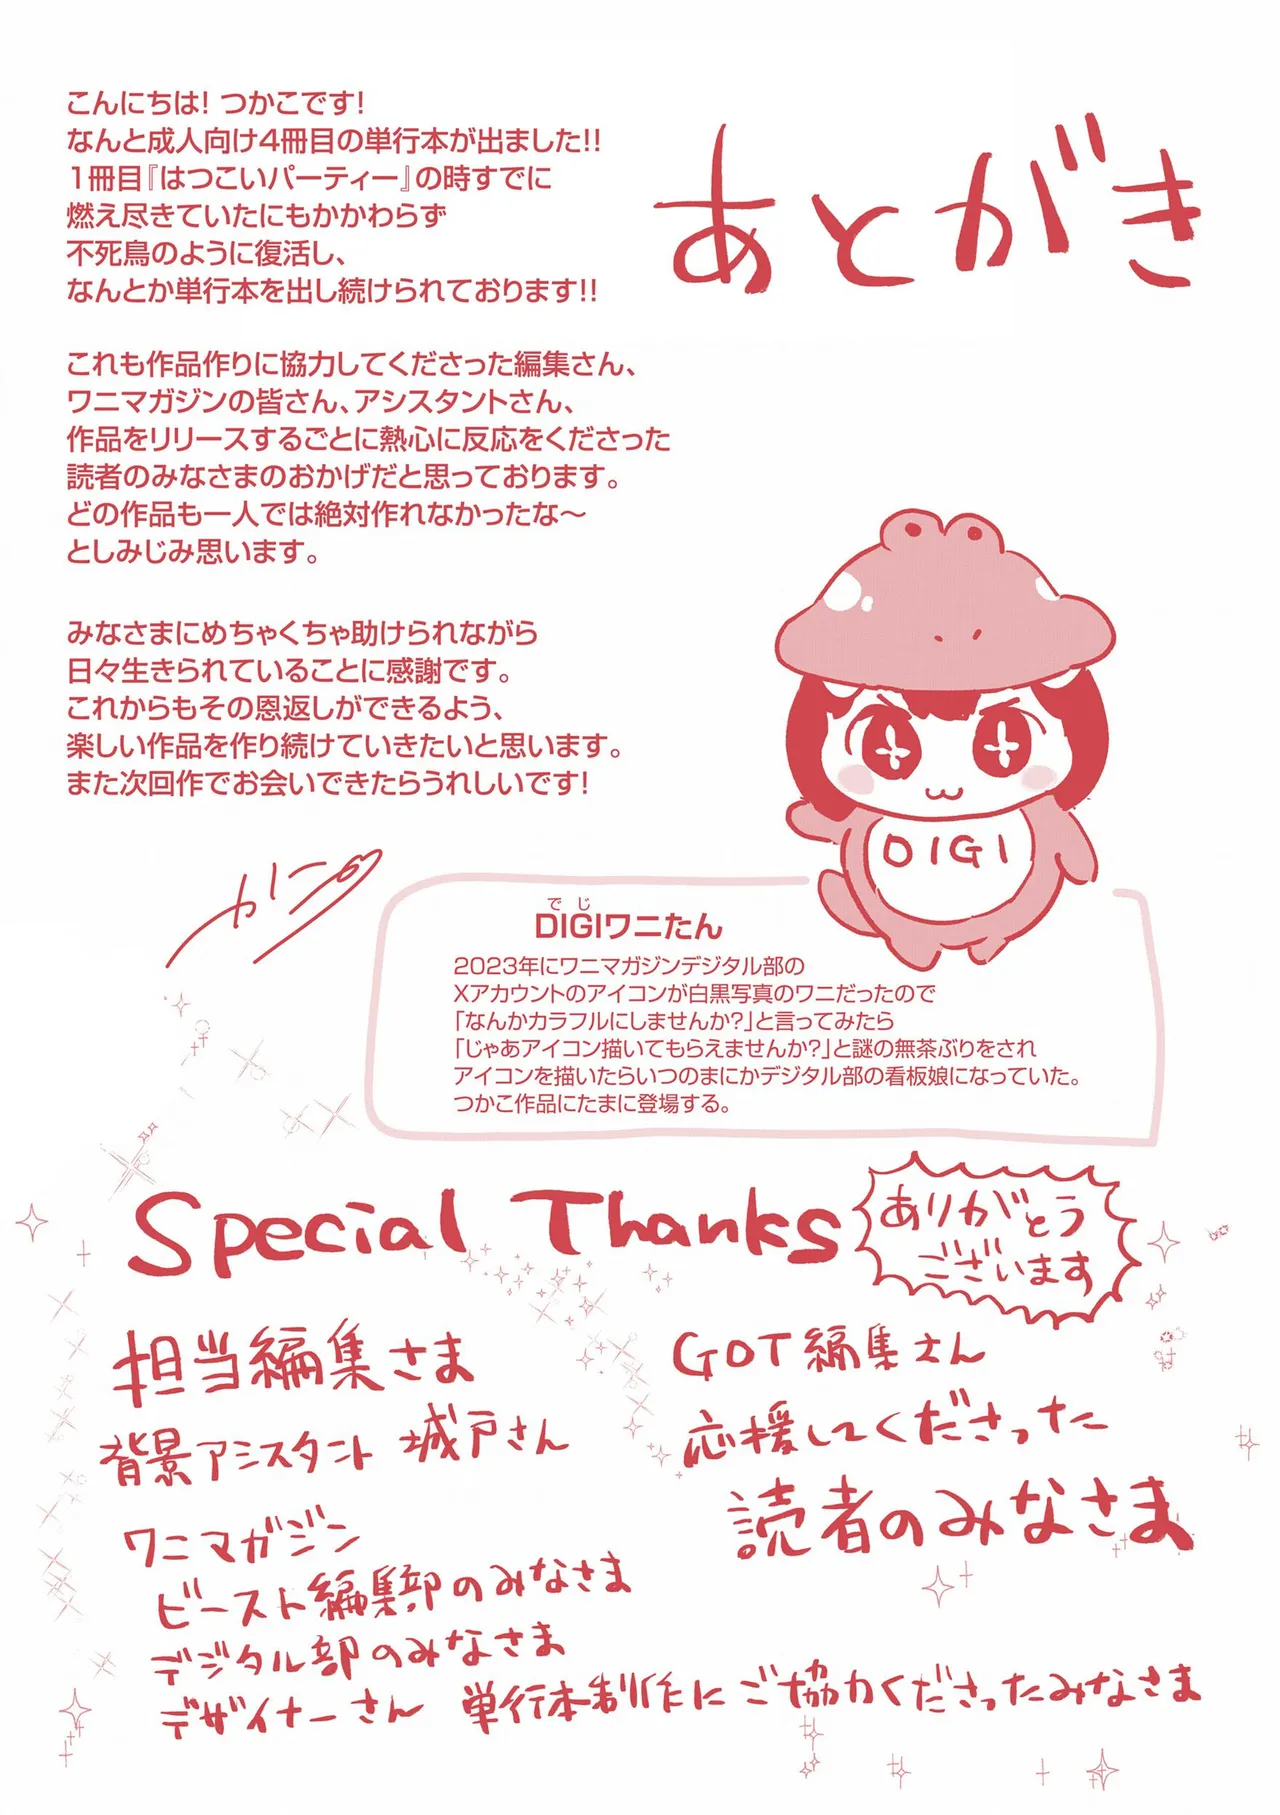 あとがき
こんにちは！つかこです！
なんと成人向け4冊目の単行本が出ました!!
1冊目『はつこいパーティー』の時すでに
燃え尽きていたにもかかわらず
不死鳥のように復活し、
なんとか単行本を出し続けられております!!
これも作品作りに協力してくださった編集さん、
ワニマガジンの皆さん、アシスタントさん、
作品をリリースするごとに熱心に反応をくださった
読者のみなさまのおかげだと思っております。
どの作品も一人では絶対作れなかったな〜
としみじみ思います。
みなさまにめちゃくちゃ助けられながら
日々生きられていることに感謝です。
これからもその恩返しができるよう、
楽しい作品を作り続けていきたいと思います。
また次回作でお会いできたらうれしいです！
DIGI
でじ
DIGIワニたん
2023年にワニマガジンデジタル部の
Xアカウントのアイコンが白黒写真のワニだったので
「なんかカラフルにしませんか?」と言ってみたら
「じゃあアイコン描いてもらえませんか?」と謎の無茶ぶりをされ
アイコンを描いたらいつのまにかデジタル部の看板娘になっていた。
つかこ作品にたまに登場する。
Special Thanks
ありがとう
ございます
担当編集さま
背景アシスタント 城戸さん
ワニマガジン
ビースト編集部のみなさま
デジタル部のみなさま
デザイナーさん 単行本制作にご協力くださったみなさま
GOT編集さん
応援してくださった
読者のみなさま